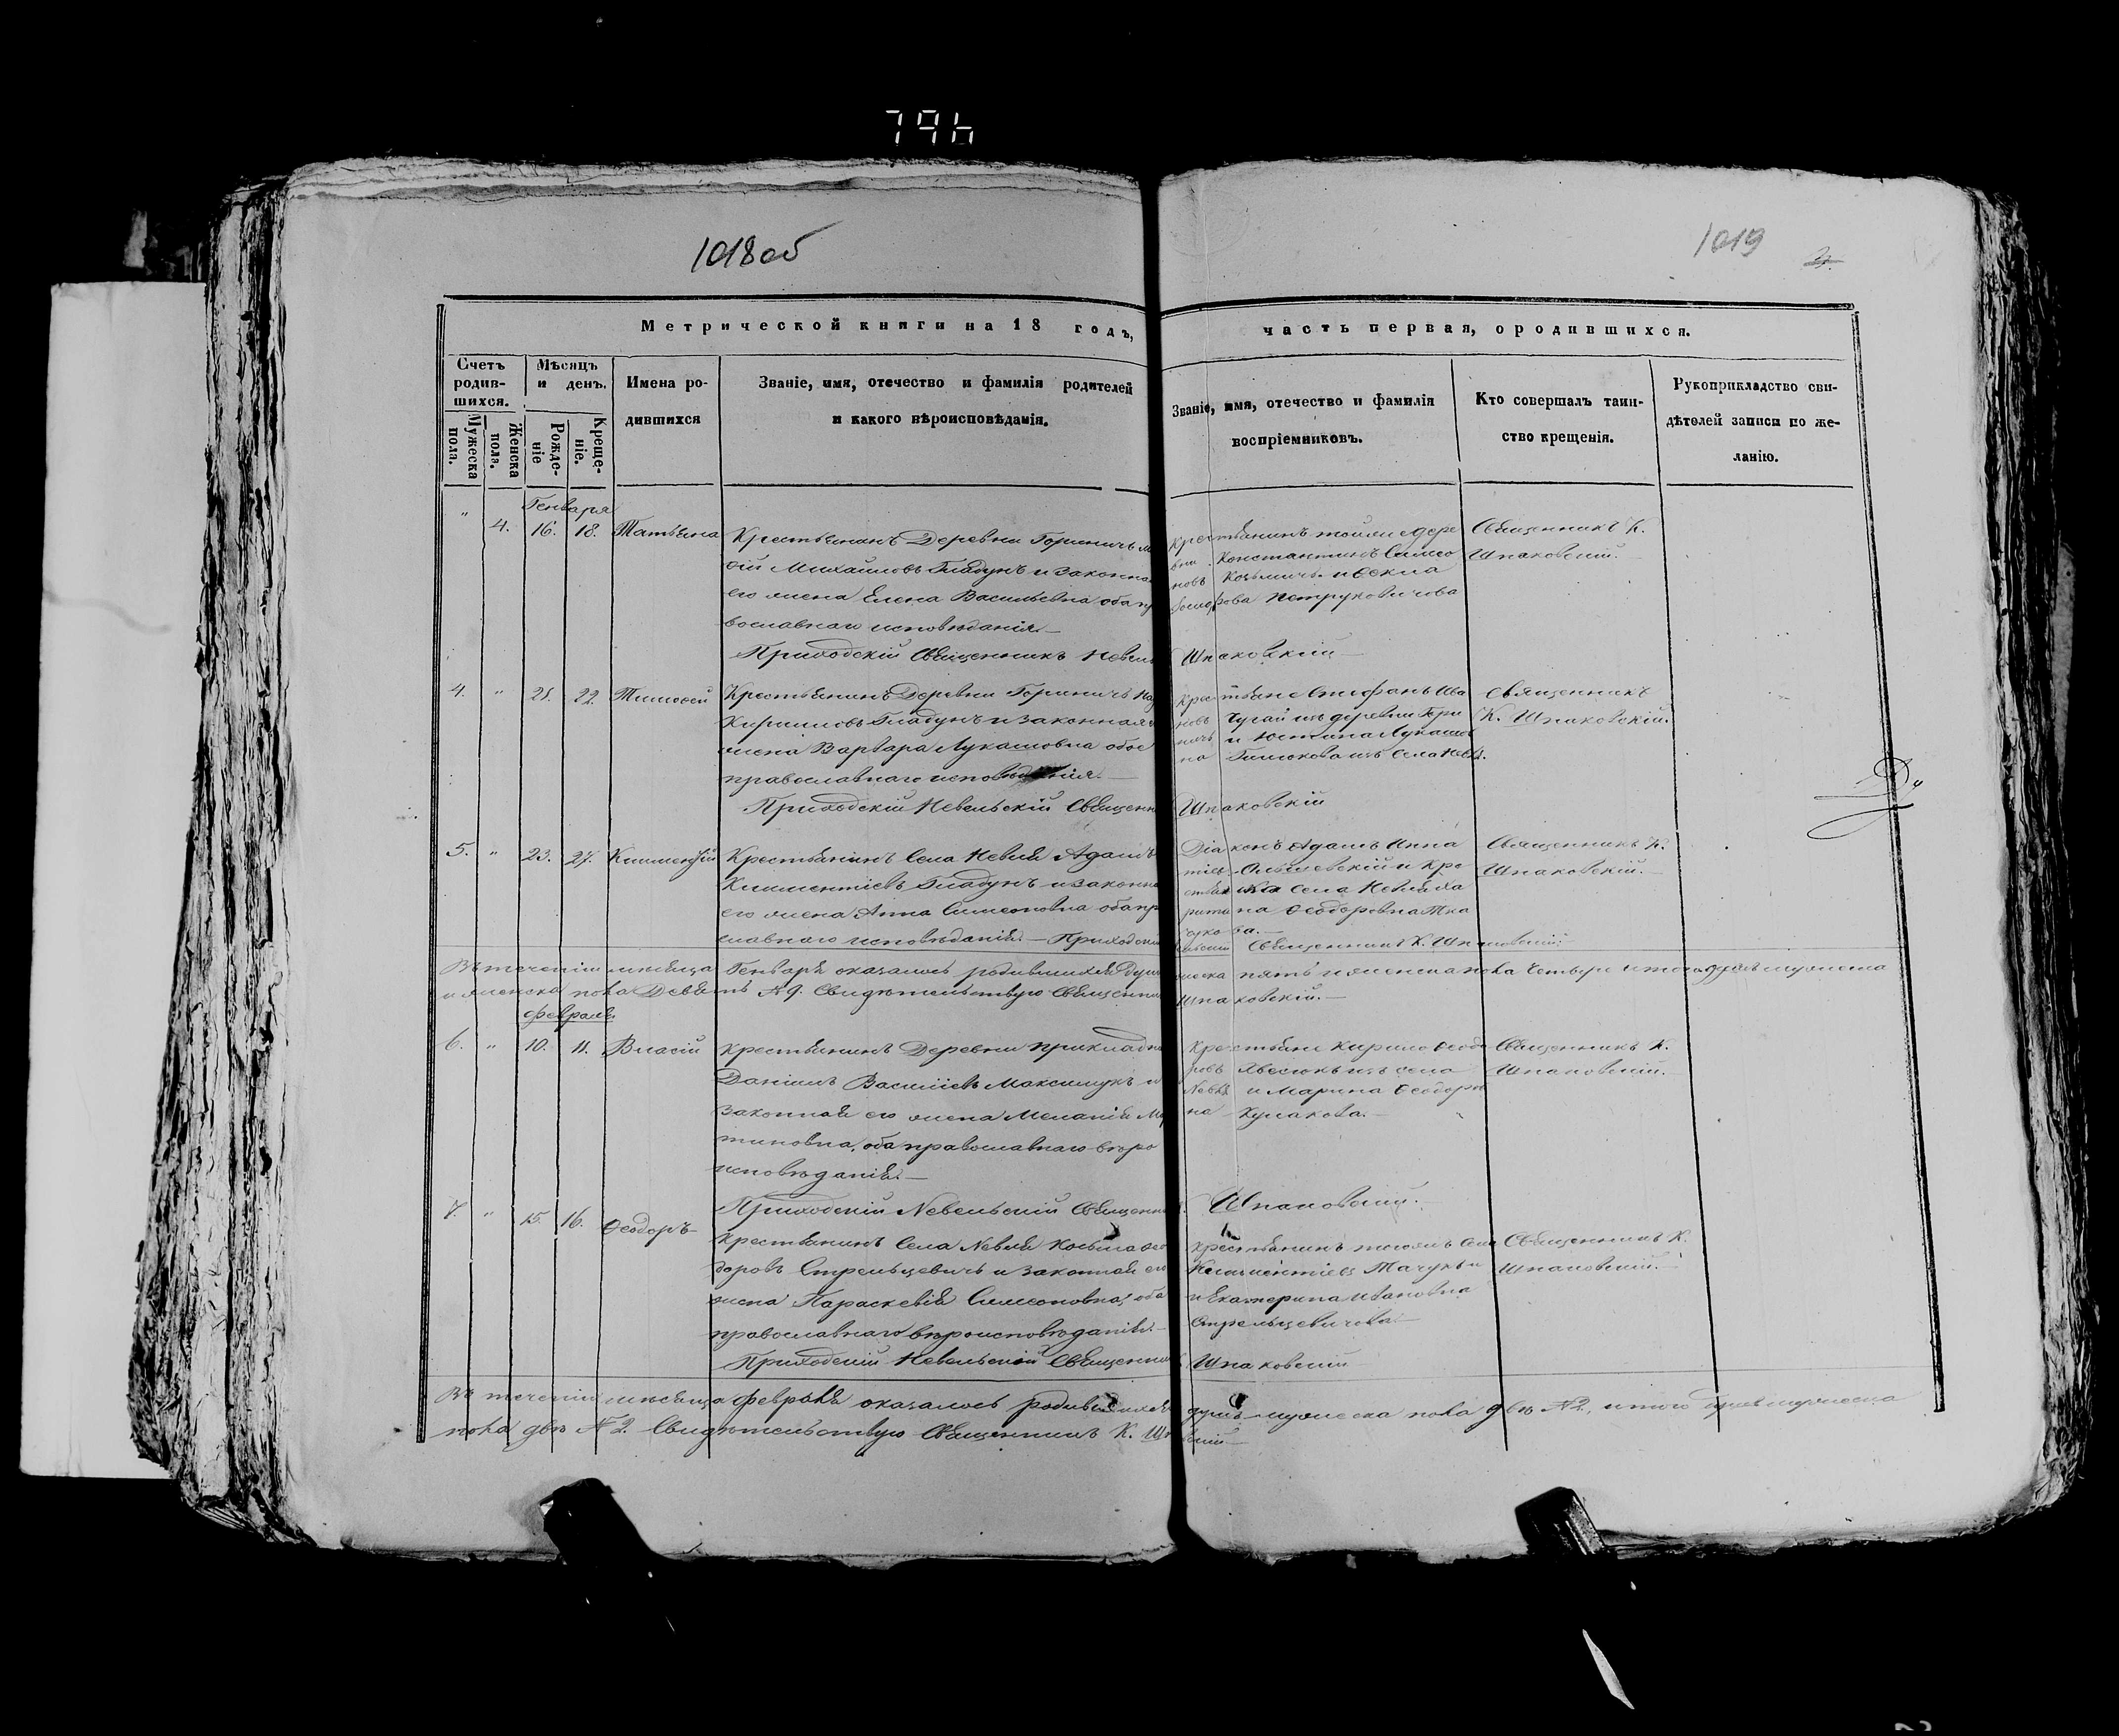 794
1018об
1019
Метрической книги на 18 годъ,
часть первая, ородившихся.
Счетъ родив-шихся.
Мужеска пола.
Женска пола.
Мѣсяцъ и день.
Рожде-ніе
Креще-ніе.
Имена ро-
дившихся
Званіе, имя, отечество и фамилія родителей
и какого вѣроисповѣданія.
Званіе, имя, отечество и фамилія
воспріемниковъ.
Кто совершалъ таин-
ство крещенія.
Рукоприкладство сви-
дѣтелей записи по же-
ланію.
Генваря
" 4. 16. 18. Татьяна
Крестьянинъ Деревни Гориничъ
Михаиловъ Гладунъ и законна
его жена Елена Васильевна оба пр
вославнаго исповѣданія.—
Приходскій Священникъ Невель
Крестьянинъ тойже дере
вни Константинъ Симео
новъ Козьмичъ и Ѳекла
Петруковичова
Шпаковскій—
Священникъ К.
Шпаковскій.
4. " 21. 22. Тимоѳей
Крестьянинъ Деревни Гориничъ
Кириловъ Гладунъ и законная
жена Варвара Лукашовна обое
православнаго исповѣданія.—
Приходскій Невельскій Священн
Крестьяне Стефанъ Ива
новъ Чугай изъ деревни Гори
ничъ и Юстина Лукашов
на изъ села Невля.
Шпаковскій
Священникъ
К. Шпаковскій.
5. " 23. 27. Климентій
Крестьянинъ Села Невля Адамъ
Климентіевъ Гладунъ и законна
его жена Анна Симеоновна оба пр
славнаго исповѣданія.— Приходскі
Діаконъ Адамъ Игна
тіев и кре
стьянка села Невля Ха
ритина Ѳеодоровна Тка
чукова.—
Священникъ К. Шпаковскій.
Священникъ К.
Шпаковскій.—
Въ теченіи мѣсяца Генваря оказалось родившихся душъ
и женска пола Девять № 9. Свидѣтельствую Священни
жеска пять и женска пола четыре итого душъ мужеска
Шпаковскій.—
Февраль.
6. " 10. 11. Власій
Крестьянинъ Деревни Прикладн
Даніилъ Василіевъ Максимукъ и
Законная его жена Меланія Ма
тиновна, оба православнаго вѣро
исповѣданія.—
Приходскій Невельскій Священни
Крестьяне Кирило Ѳеодо
ровъ изъ села
Невля и Марина Ѳеодоров
на Кулакова.—
Шпаковскій.
Священникъ К.
Шпаковскій.
7. " 15. 16. Ѳеодоръ
Крестьянинъ Села Невля Косьма Ѳео
доровъ Стрельцевичъ и законная его
жена Параскевія Симеоновна, оба
православнаго вѣроисповѣданія.—
Приходскій Невельскій Священник
Крестьянинъ тогожъ села
Климентіевъ
и Екатерина Ивановна
Стрельцевичова.—
Шпаковскій
Священникъ К.
Шпаковскій.—
Въ теченіи мѣсяца февраля оказалось родившихся
пола двѣ № 2. Свидѣтельствую Священникъ К. Шп
душъ мужеска пола двѣ № 2., итого душъ мужеска
вскій—